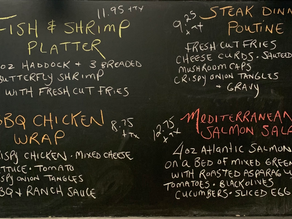 FISH & SHRIMP 11.95 +TX
PLATTER
OZ HADDOCK & 3 BREADED
BUTTERFLY SHRIMP
WITH FRESH CUT FRIES
9.25 +TX STEAK DINN
POUTINE
FRESH CUT FRIES
CHEESE CURDS
MUSHROOM CAPS
CRISPY ONION TANGLES
& GRAVY
BBQ CHICKEN
WRAP 8.75 +TX
CRISPY CHICKEN · MIXED CHEESE
LETTUCE · TOMATO
CRISPY ONION TANGLES
BBQ & RANCH SAUCE
MEDITERRANEAN
12.75 +TX SALMON SALA
4OZ ATLANTIC SALMON
ON A BED OF MIXED GREEN
WITH ROASTED ASPARAGU
TOMATOES · BLACK OLIVES
CUCUMBERS · SLICED EGG